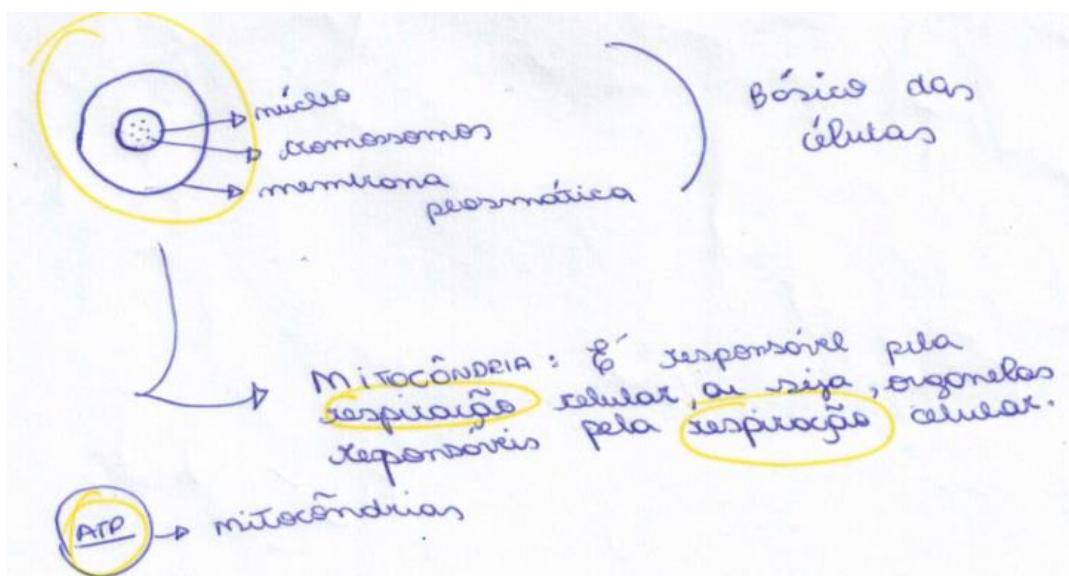 núcleo
cromossomos
membrana
plasmática
Básico das
células
MITOCÔNDRIA: É responsável pela
respiração celular, ou seja, organelas
reponsáveis pela respiração celular.
ATP → mitocôndrias